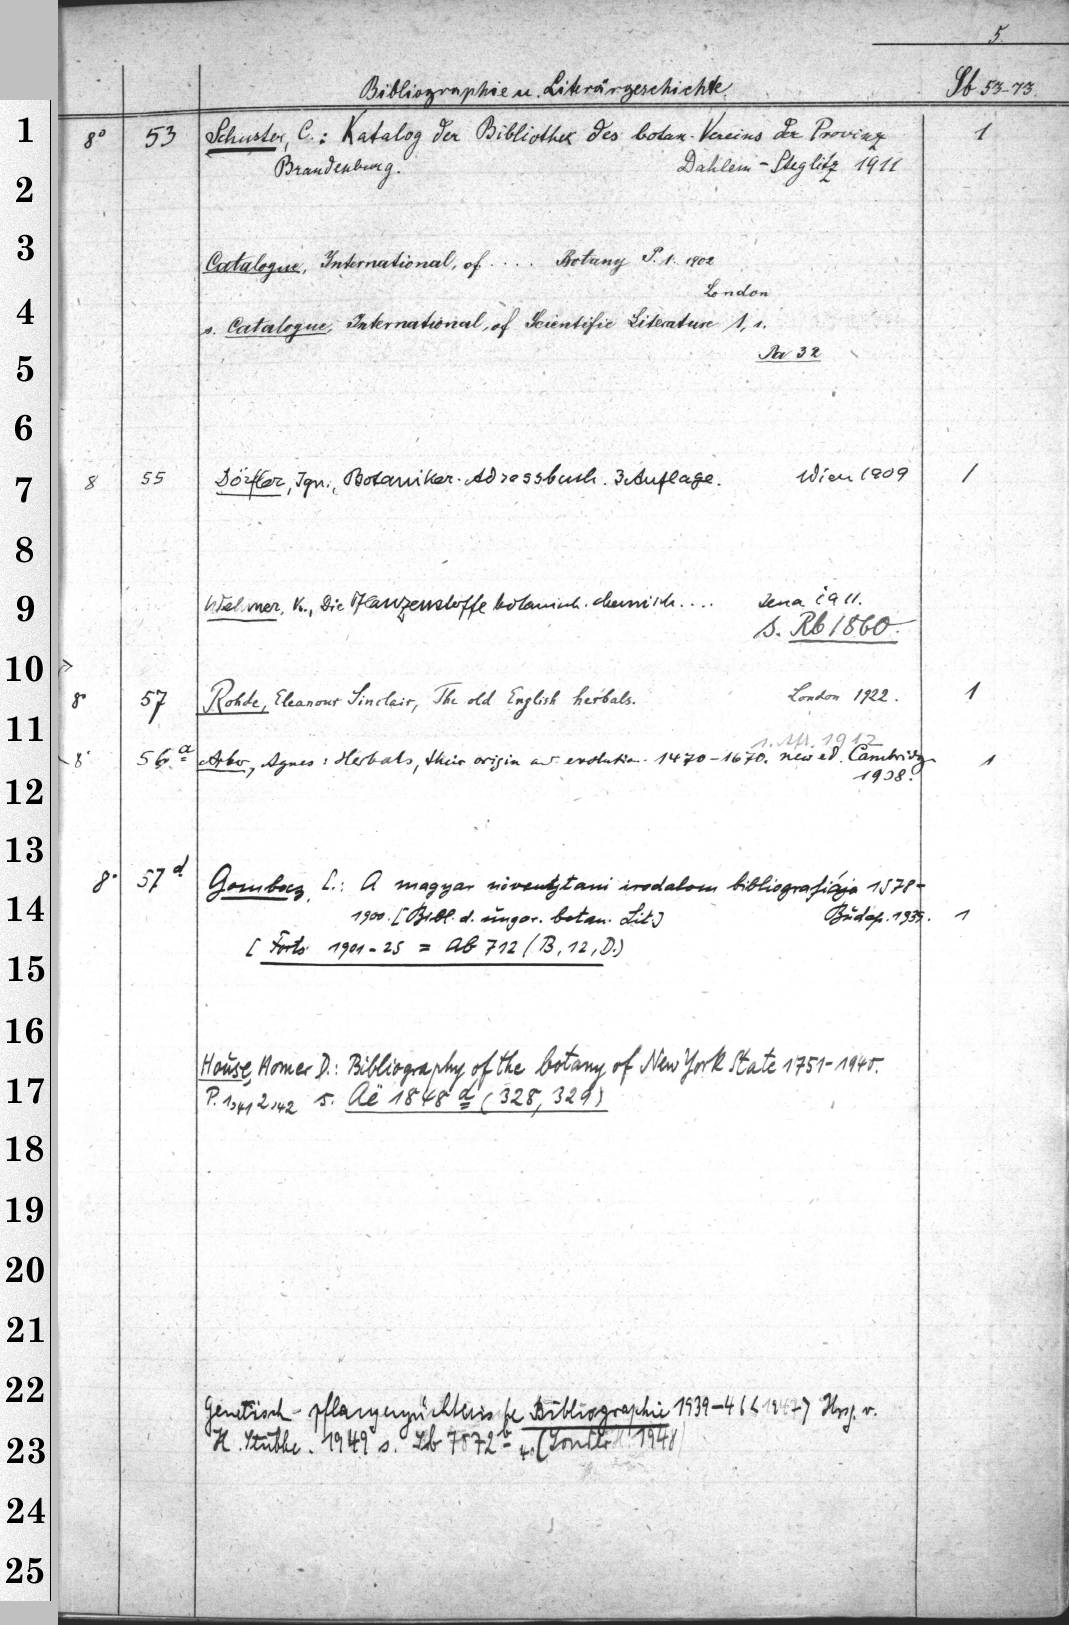 5.
Bibliographie u. Literärgeschichte. Sb 53-73.
1 8° 53 Schuster, C.: Katalog der Bibliothek des botan. Vereins der Provinz 1
2 Brandenburg. Dahlem-Steglitz 1911
3 Catalogue, International, of .... Botany P. 1. 1902
London
4 s. Catalogue, International, of Scientific Literature 1, 1.
5 32
6
7 8 55 Dörfler, Ign., Botaniker-Adressbuch. 3 Auflage. Wien 1909 1
8
9 Wehmer, K., Die Pflanzenstoffe botanisch-chemisch.... Jena 1911.
s. Rb 1860.
10
8° 57 Rohde, Eleanour Sinclair, The old English herbals. London 1922. 1
11 1. Afl. 1912
8° 56 a Arber, Agnes: Herbals, their origin and evolution. 1470-1670. new ed. Cambridg 1
12 1938.
13
8° 57 d Gombocz, E.: A magyar növénytani irodalom bibliografiája 1578-
14 1900. [Bibl. d. ungar. botan. Lit.] Budap. 1939. 1
[Forts. 1901-25 = Ab 712 (B, 12, D.)
15
16
House, Homer D.: Bibliography of the botany of New York State 1751-1940.
17 P. 1,41 2,42 s. Aë 1848 d (328, 329)
18
19
20
21
22 Genetisch-pflanzenzüchterische Bibliographie 1939-4 Hrsg. v.
23 H. Stubbe. 1949 s. 7872 b 1948
24
25